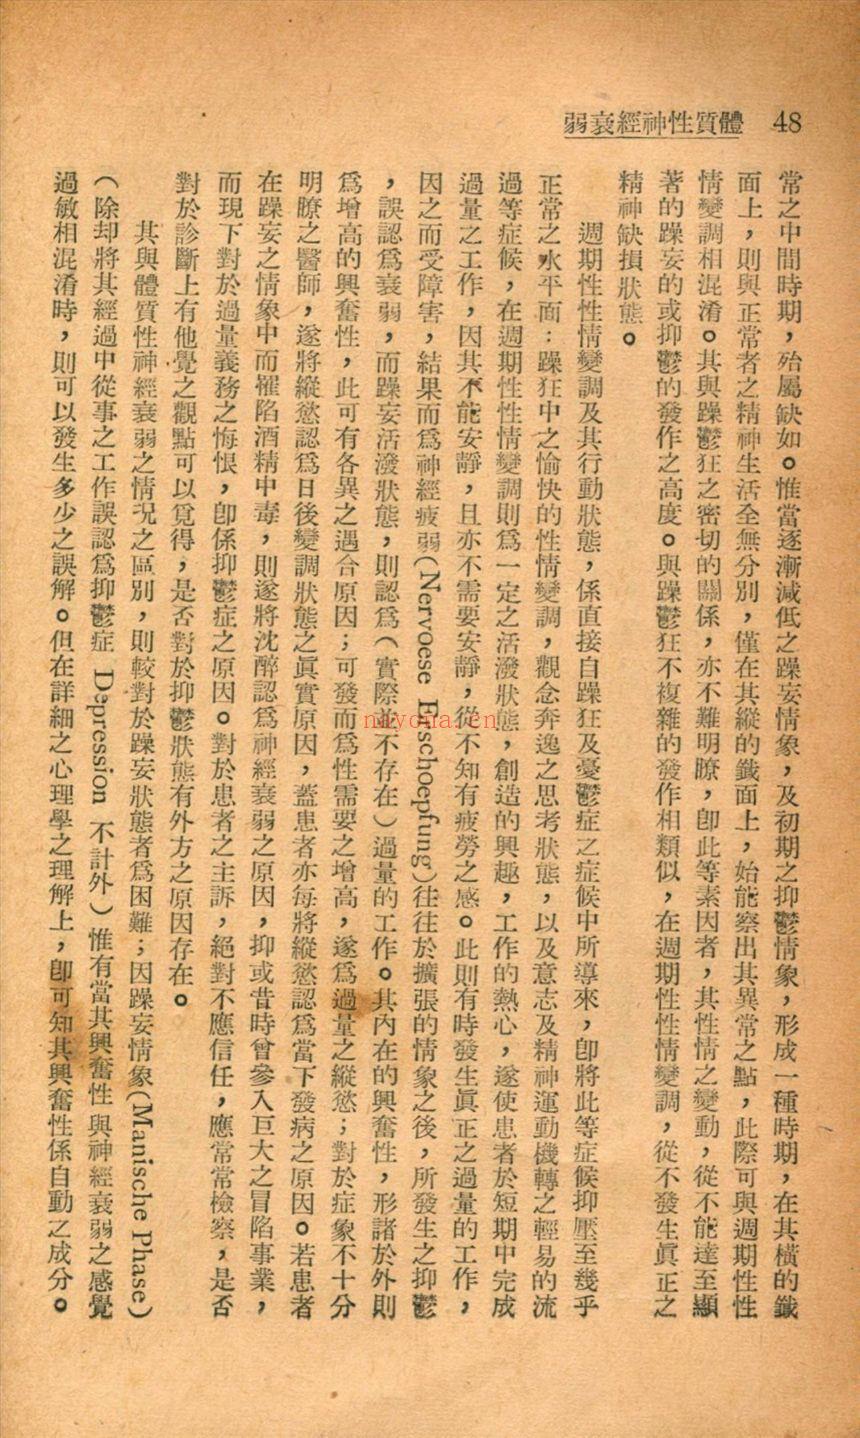 48　體質性神經衰弱
常之中間時期，殆屬缺如。惟當逐漸減低之躁妄情象，及初期之抑鬱情象，形成一種時期，在其橫的鐵
面上，則與正常者之精神生活全無分別，僅在其縱的鐵面上，始能察出其異常之點，此際可與週期性性
情變調相混淆。其與躁鬱狂之密切的關係，亦不難明瞭，卽此等素因者，其性情之變動，從不能達至顯
著的躁妄的或抑鬱的發作之高度。與躁鬱狂不複雜的發作相類似，在週期性性情變調，從不發生眞正之
精神缺損狀態。
週期性性情變調及其行動狀態，係直接自躁狂及憂鬱症之症候中所導來，卽將此等症候抑壓至幾乎
正常之水平面：躁狂中之愉快的性情變調，觀念奔逸之思考狀態，以及意志及精神運動機轉之輕易的流
過等症候，在週期性性情變調則爲一定之活潑狀態，創造的興趣，工作的熱心，遂使患者於短期中完成
過量之工作，因其不能安靜，且亦不需要安靜，從不知有疲勞之感。此則有時發生眞正之過量的工作，
因之而受障害，結果而爲神經疲弱(Nervoese Erschoepfung)往往於擴張的情象之後，所發生之抑鬱
，誤認爲衰弱，而躁妄活潑狀態，則認爲（實際並不存在）過量的工作。其內在的興奮性，形諸於外則
爲增高的興奮性，此可有各異之遇合原因；可發而爲性需要之增高，遂爲過量之縱慾；對於症象不十分
明瞭之醫師，遂將縱慾認爲日後變調狀態之眞實原因，蓋患者亦每將縱慾認爲當下發病之原因。若患者
在躁妄之情象中而罹陷酒精中毒，則遂將沈醉認爲神經衰弱之原因，抑或昔時曾參入巨大之冒陷事業，
而現下對於過量義務之悔恨，卽係抑鬱症之原因。對於患者之主訴，絕對不應信任，應常常檢察，是否
對於診斷上有他覺之觀點可以覓得，是否對於抑鬱狀態有外方之原因存在。
其與體質性神經衰弱之情況之區別，則較對於躁妄狀態者爲困難；因躁妄情象(Manische Phase)
（除却將其經過中從事之工作誤認爲抑鬱症 Depression 不計外）惟有當其興奮性與神經衰弱之感覺
過敏相混淆時，則可以發生多少之誤解。但在詳細之心理學之理解上，卽可知其興奮性係自動之成分。